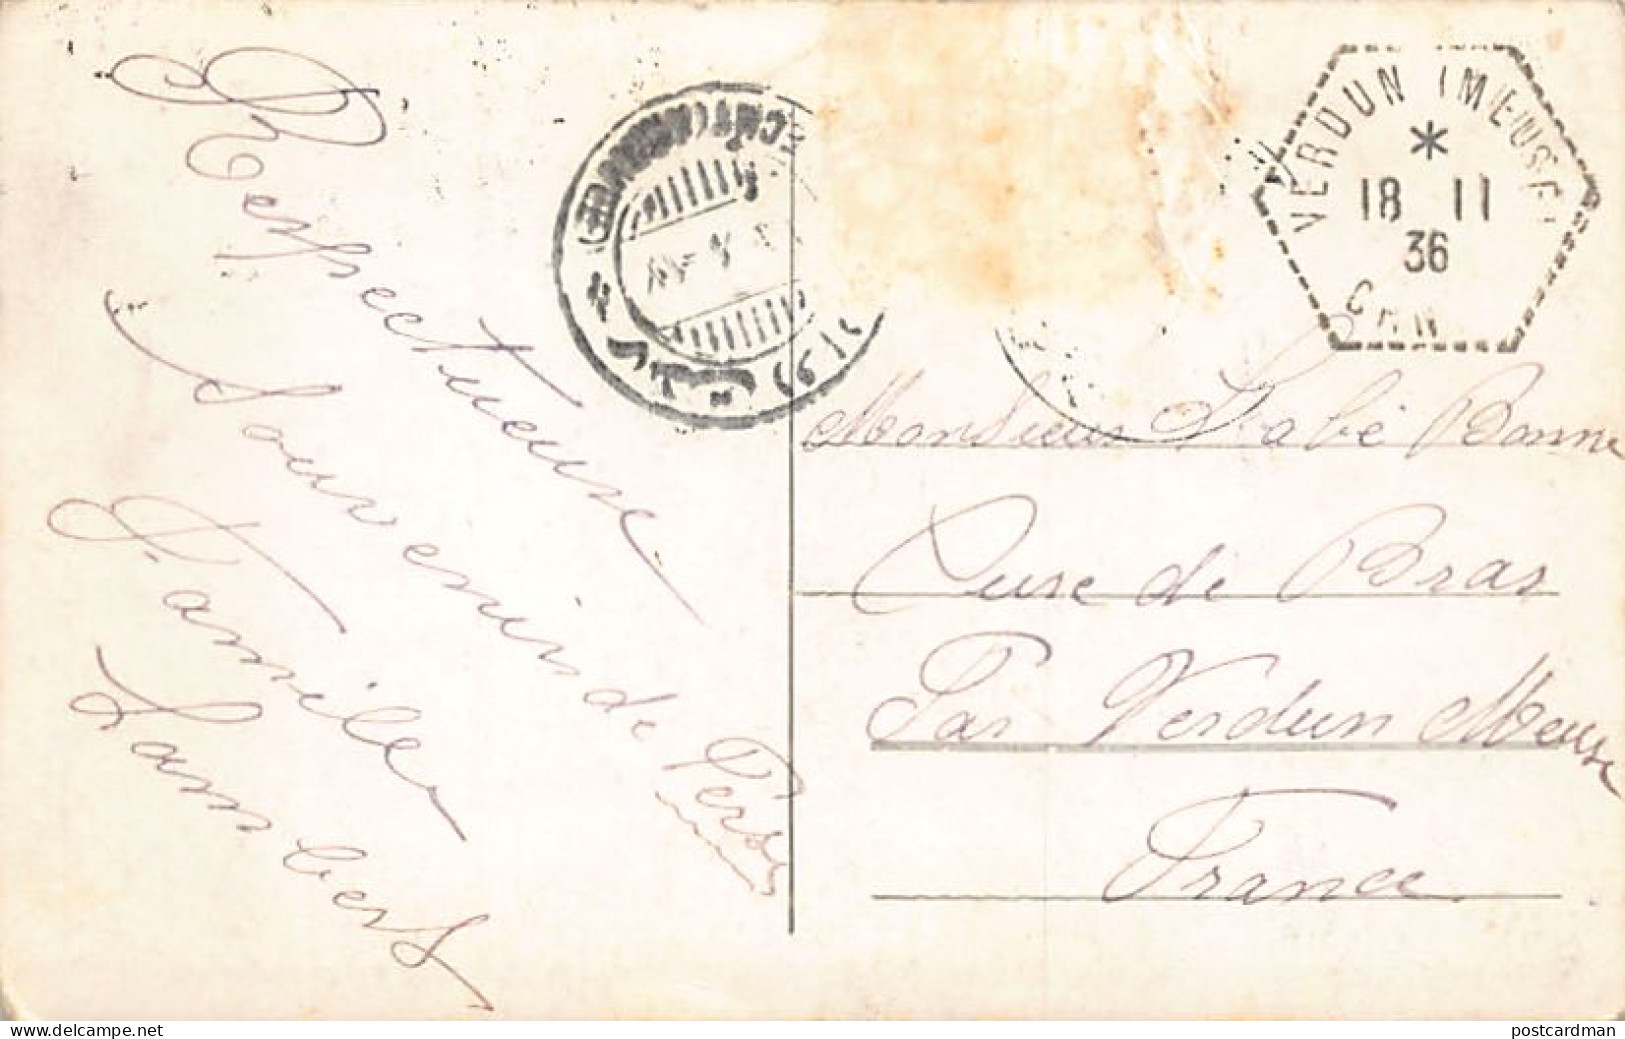 Respectueux
Souvenirs de Perse
Famille
Lambert
VERDUN (MEUSE)
18 11
36
Monsieur L'abbé Bonne
Curé de Bras
Par Verdun Meuse
France
www.delcampe.net
postcardman